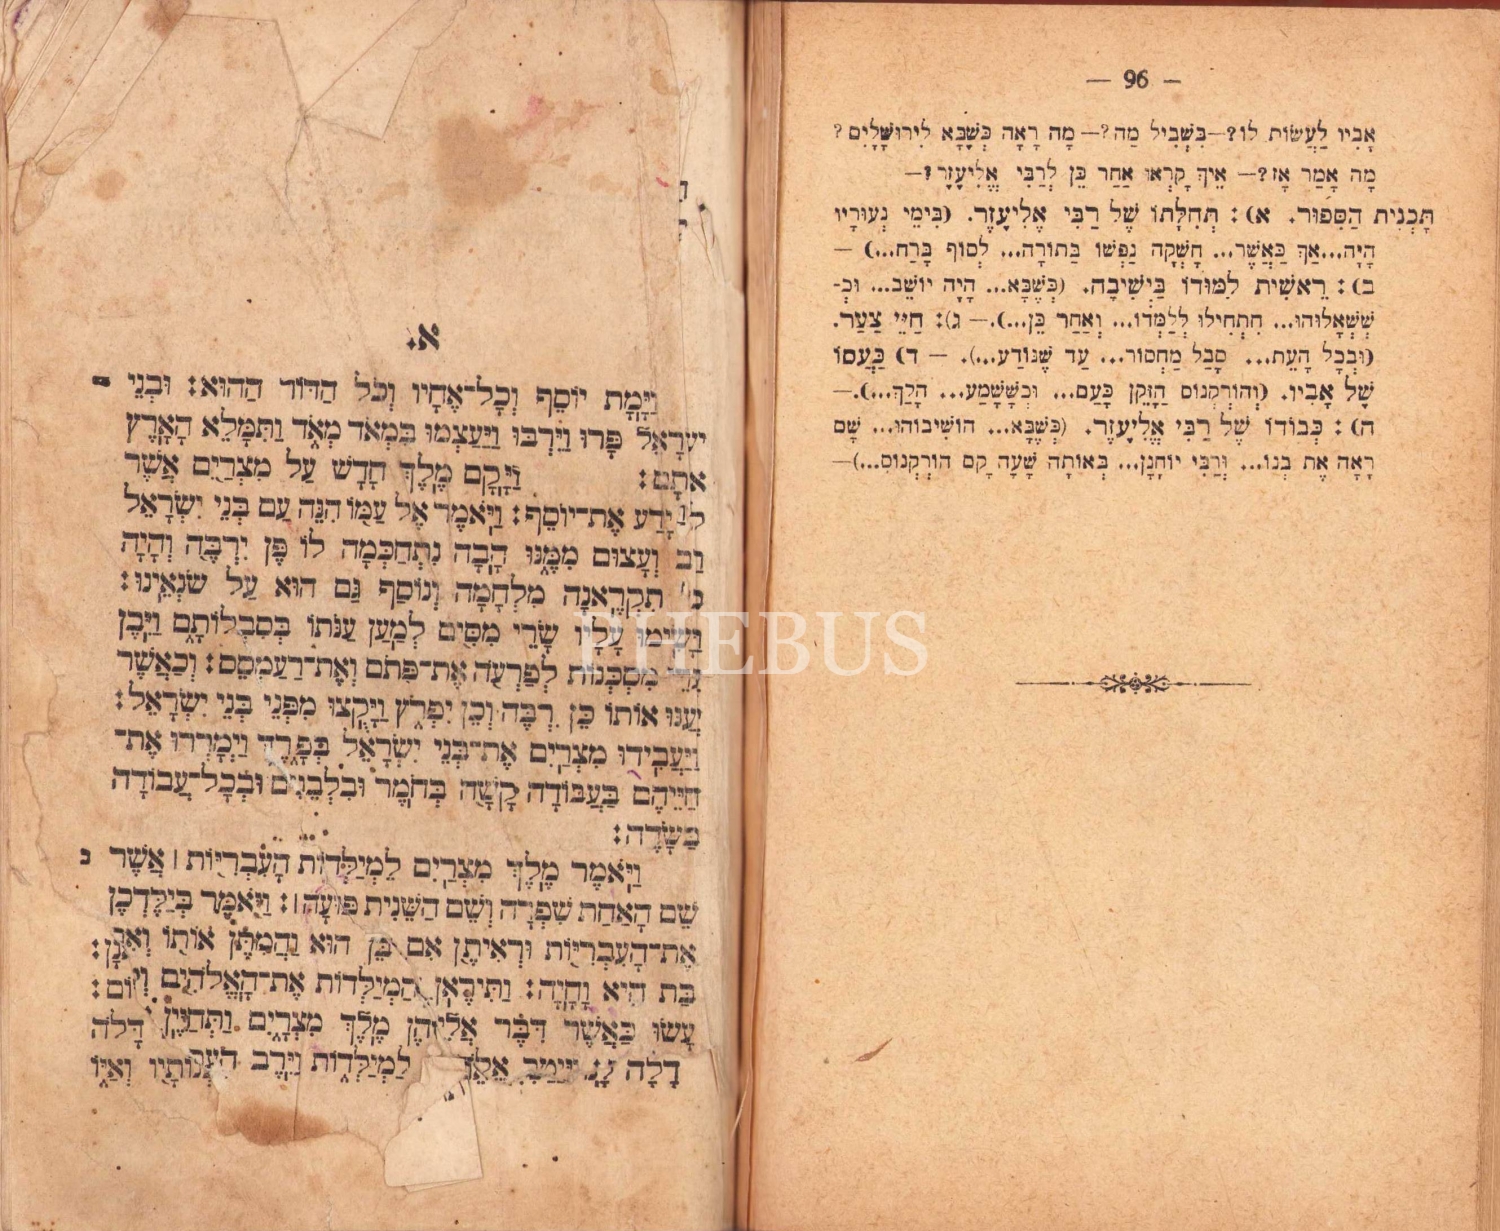 — 96 —
אָבִיו לַעֲשׂוֹת לוֹ?—בִּשְׁבִיל מַה?— מָה רָאָה כְּשֶׁבָּא לִירוּשָׁלָיִם?
מָה אָמַר אָז?— אֵיךְ קָרְאוּ אַחַר כֵּן לְרַבִּי אֱלִיעֶזֶר?—
תָּכְנִית הַסִּפּוּר. א): תְּחִלָּתוֹ שֶׁל רַבִּי אֱלִיעֶזֶר. (בִּימֵי נְעוּרָיו
הָיָה...אַךְ כַּאֲשֶׁר... חָשְׁקָה נַפְשׁוֹ בַּתּוֹרָה... לְסוֹף בָּרַח...) —
ב): רֵאשִׁית לִמּוּדוֹ בַּיְשִׁיבָה. (כְּשֶׁבָּא... הָיָה יוֹשֵׁב... וּכְ-
שֶׁשְּׁאָלוּהוּ... הִתְחִילוּ לְלַמְּדוֹ... וְאַחַר כֵּן...).— ג): חַיֵּי צַעַר.
(וּבְכָל הָעֵת... סָבַל מַחְסוֹר... עַד שֶׁנּוֹדַע...). — ד) כַּעְסוֹ
שֶׁל אָבִיו. (וְהוּרְקְנוֹס הַזָּקֵן כָּעַם... וּכְשֶׁשָּׁמַע... הָלַךְ...).—
ה): כְּבוֹדוֹ שֶׁל רַבִּי אֱלִיעֶזֶר. (כְּשֶׁבָּא... הוֹשִׁיבוּהוּ... שָׁם
רָאָה אֶת בְּנוֹ... וְרַבִּי יוֹחָנָן... בְּאוֹתָהּ שָׁעָה קָם הוּרְקְנוֹס...)—
א.
וַיָּמָת יוֹסֵף וְכָל־אֶחָיו וְכֹל הַדּוֹר הַהוּא: וּבְנֵי
יִשְׂרָאֵל פָּרוּ וַיִּרְבּוּ וַיַּעַצְמוּ בִּמְאֹד מְאֹד וַתִּמָּלֵא הָאָרֶץ
אֹתָם: וַיָּקָם מֶלֶךְ חָדָשׁ עַל מִצְרַיִם אֲשֶׁר
יָדַע אֶת־יוֹסֵף: וַיֹּאמֶר אֶל עַמּוֹ הִנֵּה עַם בְּנֵי יִשְׂרָאֵל
וְעָצוּם מִמֶּנּוּ הָבָה נִתְחַכְּמָה לוֹ פֶּן יִרְבֶּה וְהָיָה
תִקְרֶאנָה מִלְחָמָה וְנוֹסַף גַּם הוּא עַל שֹׂנְאֵינוּ:
וַיָּשִׂימוּ עָלָיו שָׂרֵי מִסִּים לְמַעַן עַנֹּתוֹ בְּסִבְלוֹתָם וַיִּבֶן
מִסְכְּנוֹת לְפַרְעֹה אֶת־פִּתֹם וְאֶת־רַעַמְסֵס: וְכַאֲשֶׁר
יְעַנּוּ אוֹתוֹ כֵּן יִרְבֶּה וְכֵן יִפְרֹץ וַיָּקֻצוּ מִפְּנֵי בְּנֵי יִשְׂרָאֵל:
וַיַּעֲבִידוּ מִצְרַיִם אֶת־בְּנֵי יִשְׂרָאֵל בְּפָרֶךְ וַיְמָרְרוּ אֶת־
חַיֵּיהֶם בַּעֲבוֹדָה קָשָׁה בְּחֹמֶר וּבִלְבֵנִים וּבְכָל־עֲבוֹדָה
בַּשָּׂדֶה:
וַיֹּאמֶר מֶלֶךְ מִצְרַיִם לַמְיַלְּדוֹת הָעִבְרִיּוֹת | אֲשֶׁר
שֵׁם הָאַחַת שִׁפְרָה וְשֵׁם הַשֵּׁנִית פּוּעָה |: וַיֹּאמֶר בְּיַלֶּדְכֶן
אֶת־הָעִבְרִיּוֹת וּרְאִיתֶן אִם בֵּן הוּא וַהֲמִתֶּן אוֹתוֹ וְאִם
בַּת הִיא וָחָיָה: וַתִּירֶאןָ הַמְיַלְּדוֹת אֶת־הָאֱלֹהִים
עָשׂוּ כַּאֲשֶׁר דִּבֶּר אֲלֵיהֶן מֶלֶךְ מִצְרָיִם וַתְּחַיֶּיןָ
לַמְיַלְּדוֹת וַיִּרֶב
PHEBUS